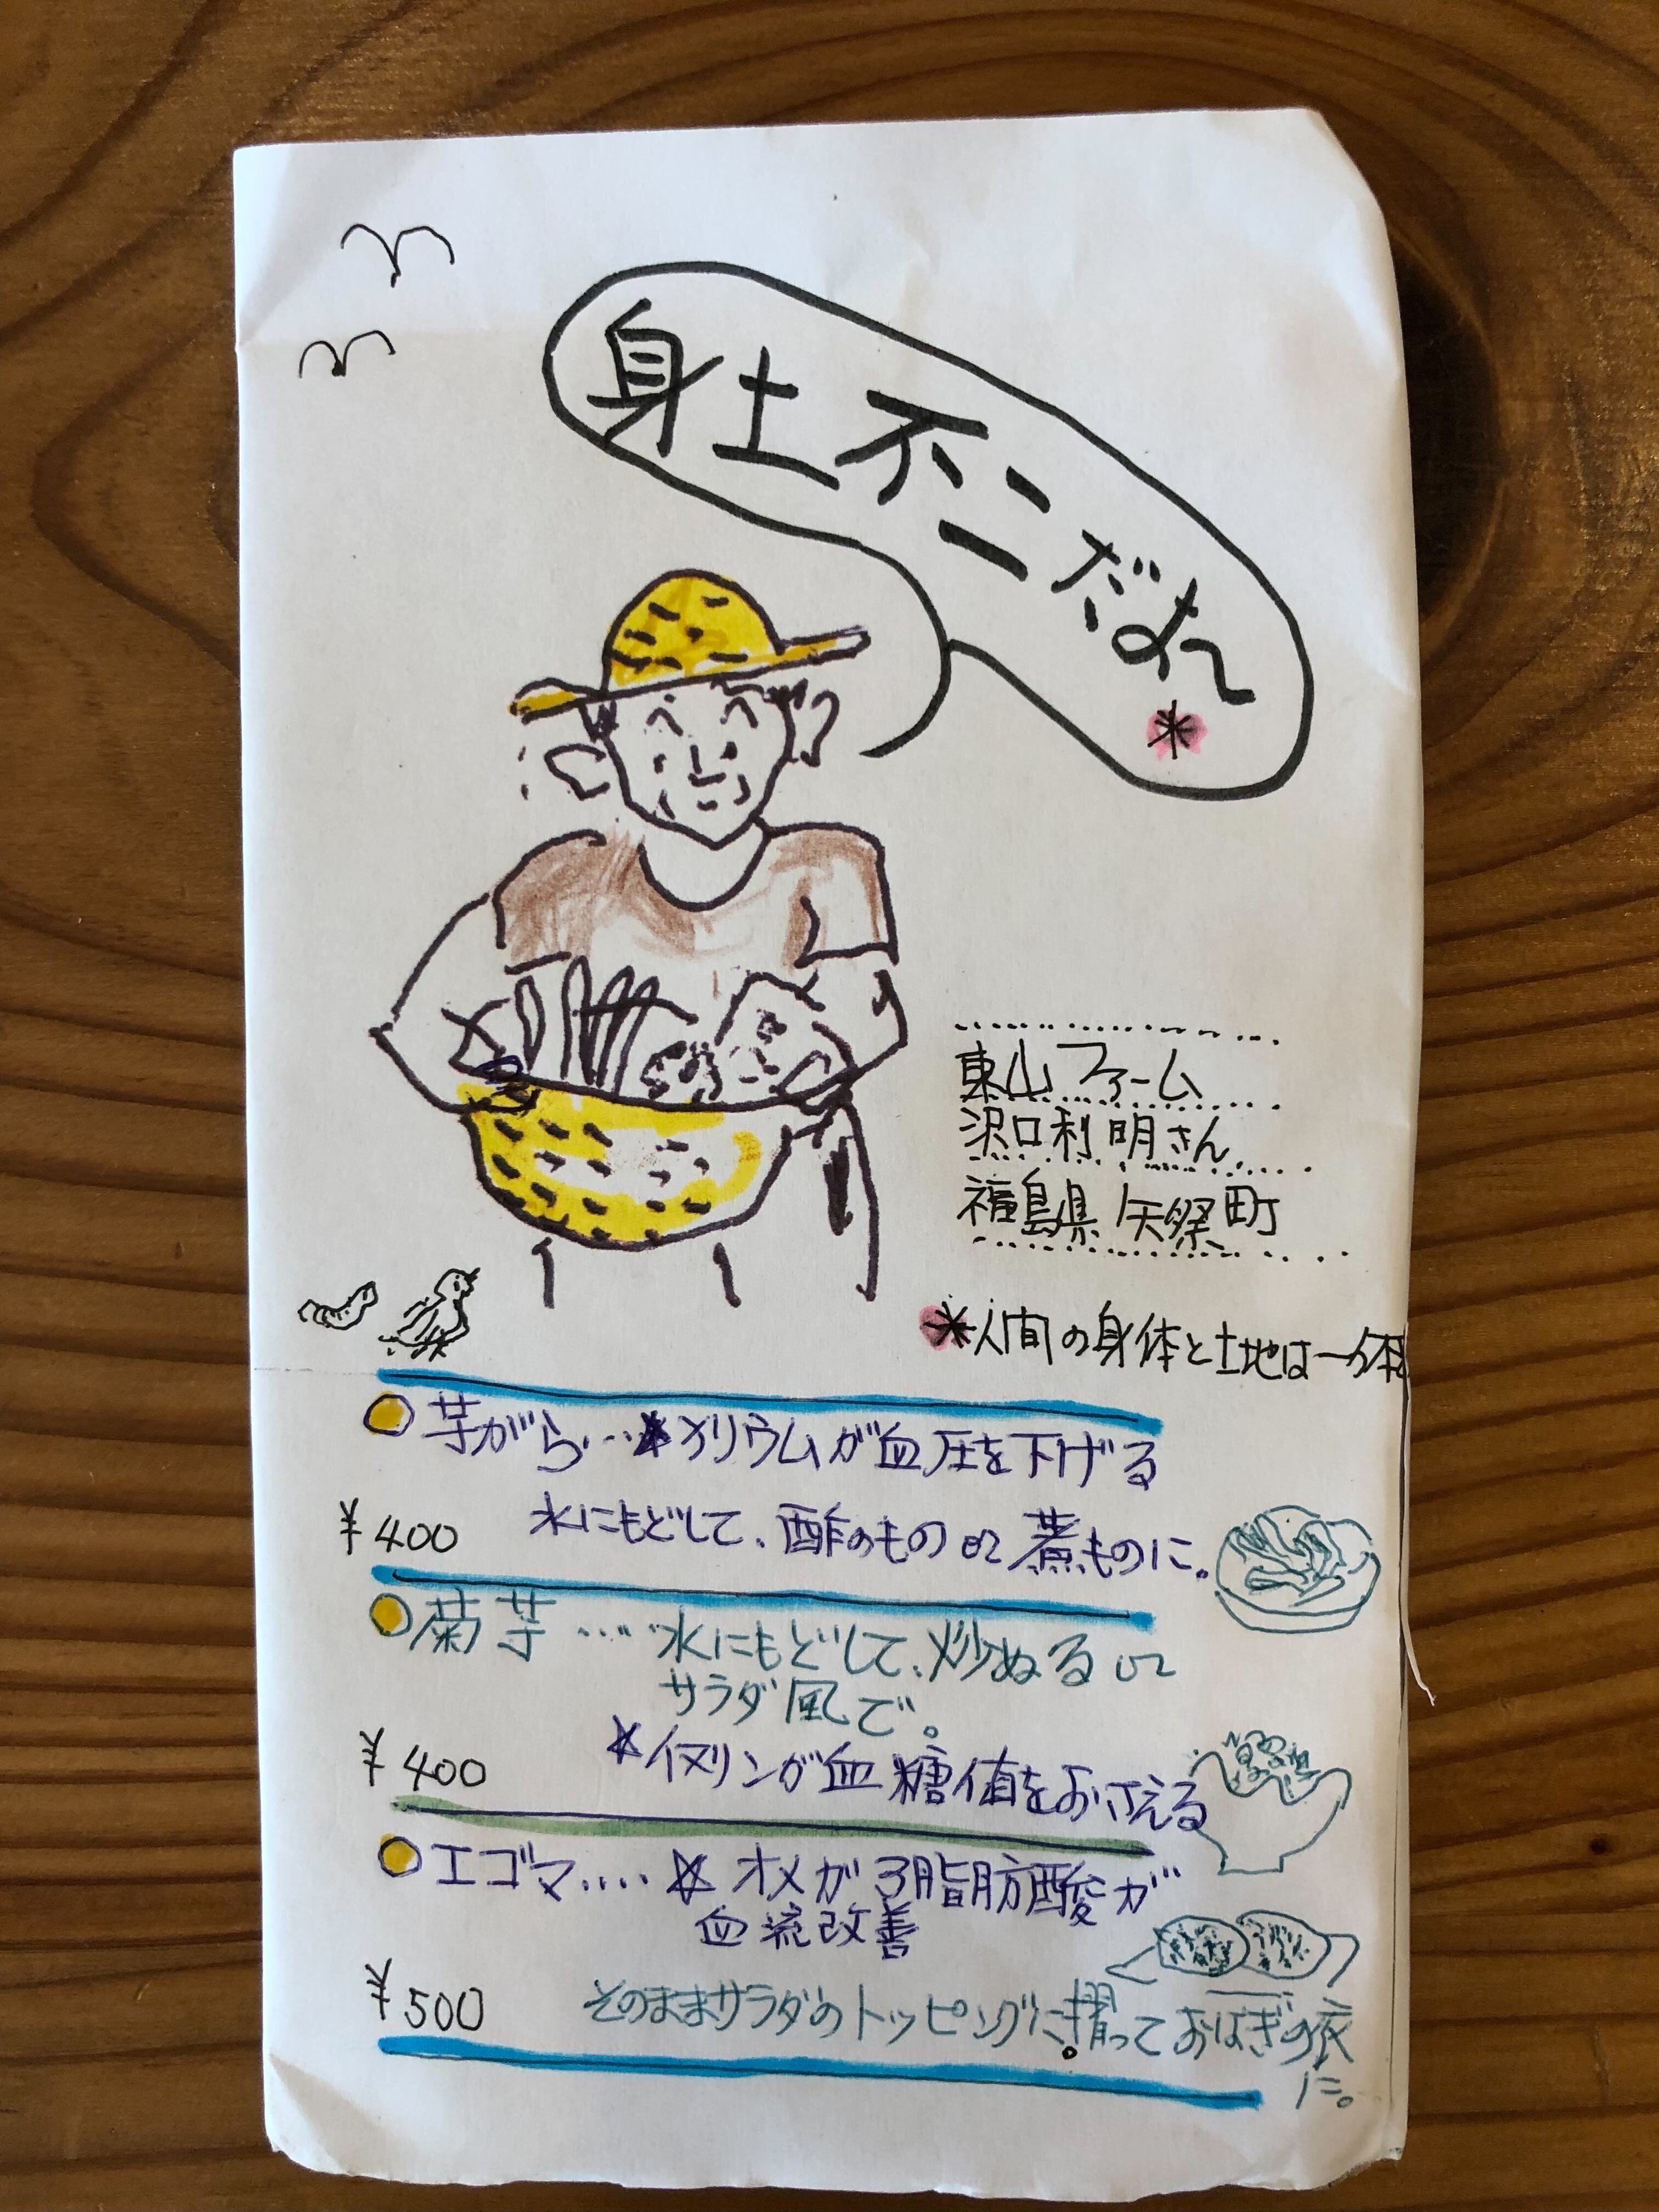 身土不二だね
*
東山ファーム
沢口利明さん
福島県 矢祭町
*人間の身体と土地は一体
芋がら...☆カリウムが血圧を下げる
¥400 水にもどして、酢のもの or 煮ものに。
菊芋....水にもどして、炒める or
サラダ風で。
☆イヌリンが血糖値をおさえる
¥400
エゴマ....☆オメガ3脂肪酸が
血流改善
¥500 そのままサラダのトッピングに。擂っておはぎの衣
に。